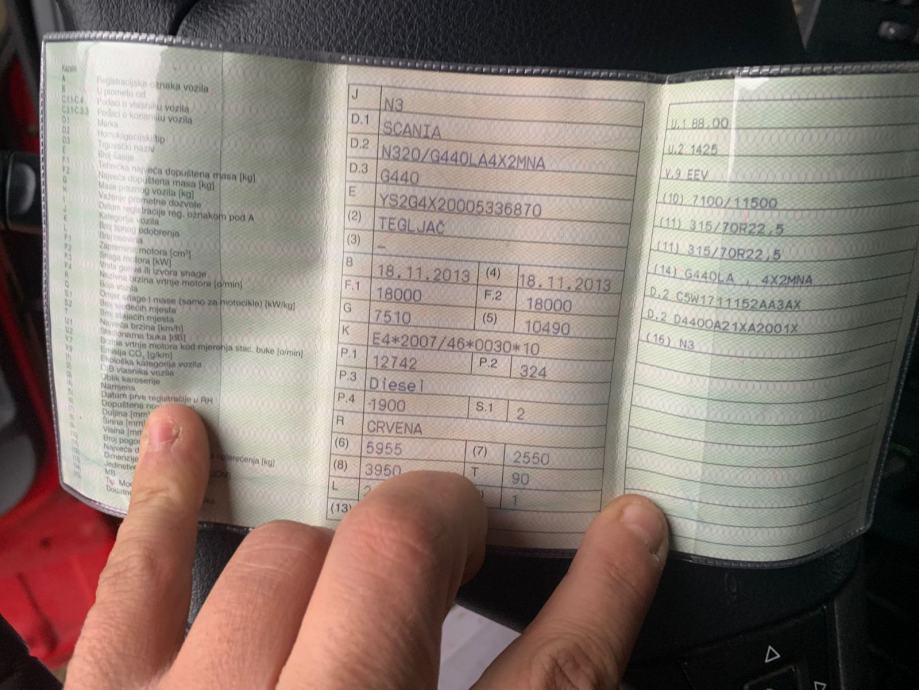 Registracijska oznaka vozila
U prometu od
Podaci o vlasniku vozila
Podaci o korisniku vozila
Marka
Homologacijski tip
Trgovački naziv
Broj šasije
Tehnička najveća dopuštena masa [kg]
Najveća dopuštena masa [kg]
Masa praznog vozila [kg]
Važenje prometne dozvole
Datum registracije reg. oznakom pod A
Kategorija vozila
Broj tipnog odobrenja
Broj osovina
Zapremina motora [cm³]
Snaga motora [kW]
Vrsta goriva ili izvora snage
Nazivna brzina vrtnje motora [o/min]
Boja vozila
Omjer snage i mase (samo za motocikle) [kW/kg]
Broj sjedećih mjesta
Broj stajaćih mjesta
Najveća brzina [km/h]
Stacionarna buka [dB]
Brzina vrtnje motora kod mjerenja stac. buke [o/min]
Emisija CO₂ [g/km]
Ekološka kategorija vozila
OIB vlasnika vozila
Oblik karoserije
Namjena
Datum prve registracije u RH
Dopuštena
Duljina [mm]
Širina [mm]
Visina [mm]
J N3
D.1 SCANIA
D.2 N320/G440LA4X2MNA
D.3 G440
E YS2G4X20005336870
(2) TEGLJAČ
(3) –
B 18.11.2013 (4) 18.11.2013
F.1 18000 F.2 18000
G 7510 (5) 10490
K E4*2007/46*0030*10
P.1 12742 P.2 324
P.3 Diesel
P.4 1900 S.1 2
R CRVENA
(6) 5955 (7) 2550
(8) 3950 T 90
L 1
(13)
U.1 88.00
U.2 1425
V.9 EEV
(10) 7100/11500
(11) 315/70R22,5
(11) 315/70R22,5
(14) G440LA , 4X2MNA
D.2 C5W1711152AA3AX
D.2 D4400A21XA2001X
(15) N3